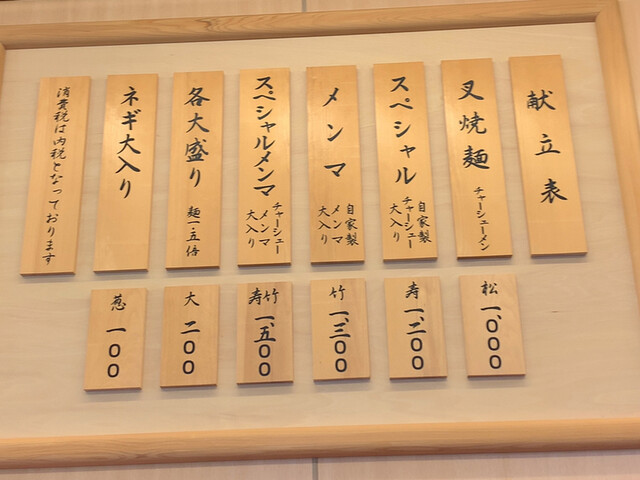 献立表
叉焼麺 チャーシューメン
松 一、〇〇〇
スペシャル 自家製 チャーシュー 大入り
寿 一、二〇〇
メンマ 自家製 メンマ 大入り
竹 一、三〇〇
スペシャルメンマ チャーシュー メンマ 大入り
竹寿 一、五〇〇
各大盛り 麺一.五倍
大 二〇〇
ネギ大入り
葱 一〇〇
消費税は内税となっております